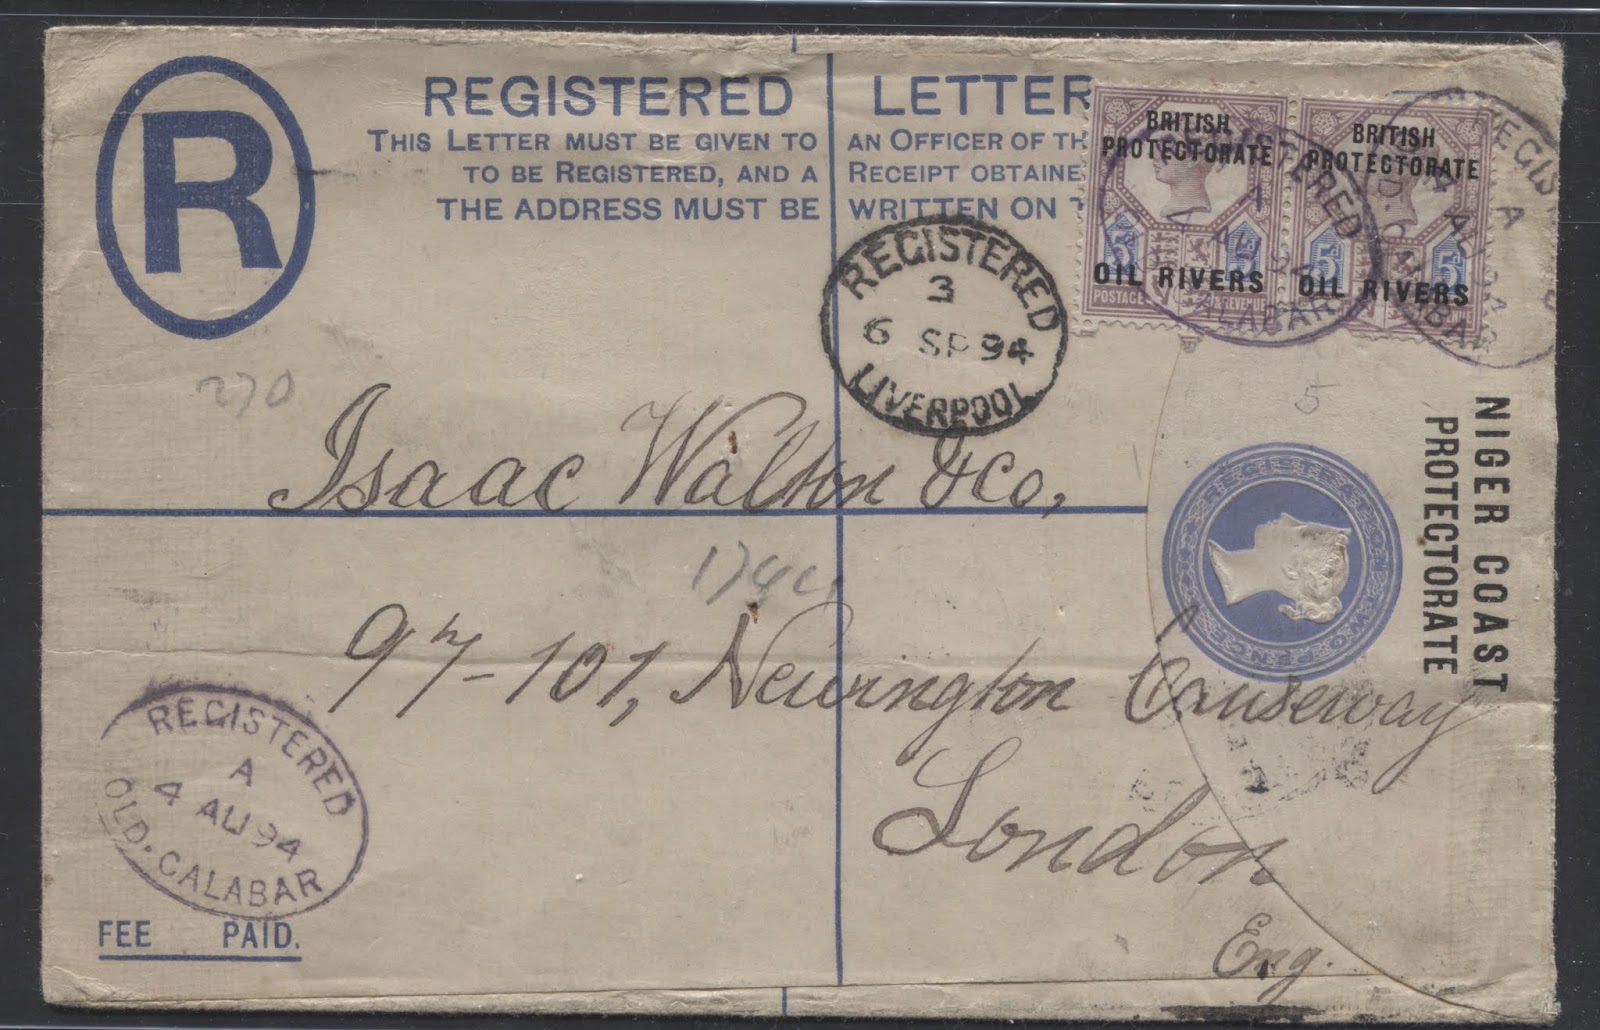 R
REGISTERED LETTER
THIS LETTER MUST BE GIVEN TO AN OFFICER OF TH
TO BE REGISTERED, AND A RECEIPT OBTAINE
THE ADDRESS MUST BE WRITTEN ON T
BRITISH
PROTECTORATE
5D
5D
OIL RIVERS
POSTAGE & REVENUE
BRITISH
PROTECTORATE
5D
5D
OIL RIVERS
REGISTERED
A
AU 94
CALABAR
REGIS
A
AU 94
ALABAR
REGISTERED
3
6 SP 94
LIVERPOOL
270
5
NIGER COAST
PROTECTORATE
REGISTRATION TWO PENCE
Isaac Walton & Co,
97-101, Newington Causeway
London
Eng.
REGISTERED
A
4 AU 94
OLD. CALABAR
FEE PAID.